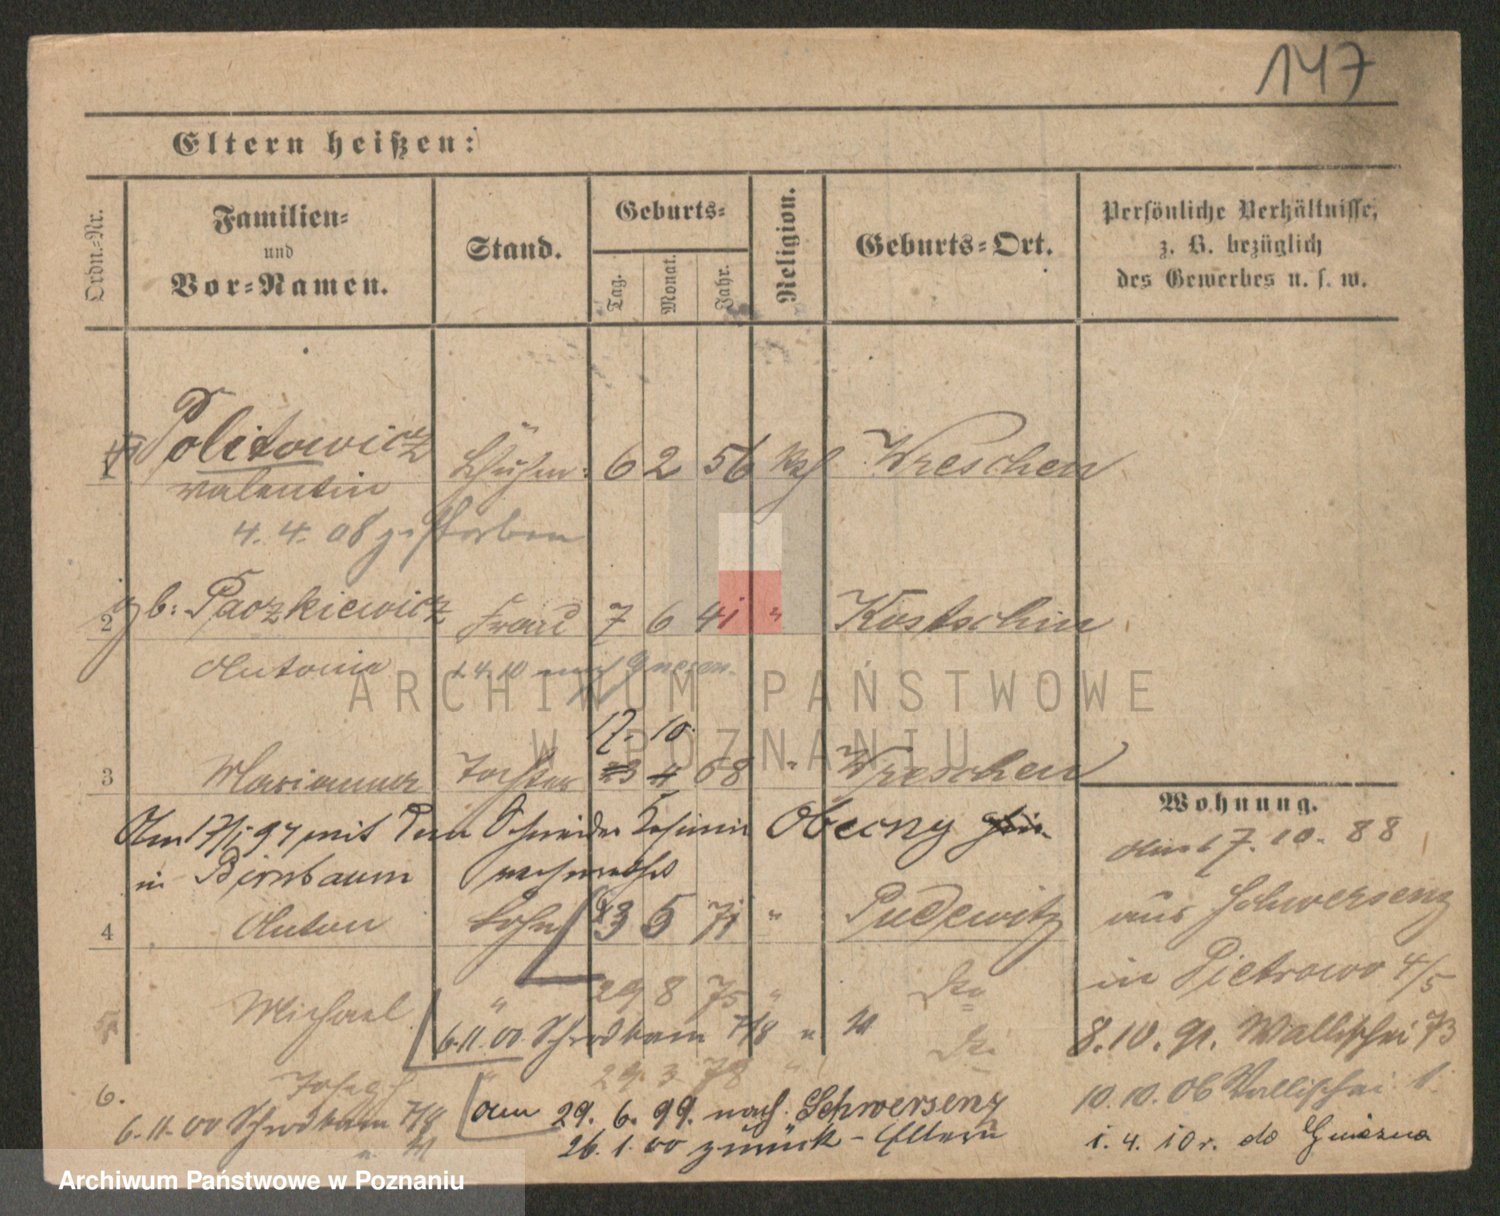 147
Eltern heißen:
Ordn.-Nr.
Familien-
und
Vor-Namen.
Stand.
Geburts-
Tag.
Monat.
Jahr.
Religion.
Geburts-Ort.
Persönliche Verhältnisse,
z. B. bezüglich
des Gewerbes u. s. w.
1 Politowicz 6 2 56 Wreschen
Valentin
4. 4. 08 gestorben
2 gb: Paczkiewicz Frau 7 6 41 " Kostschin
Antonie 1.4.10 nach Gnesen.
17. 10.
3 Marianna Tochter 23 4 68 " Wreschen
Am 17/5 97 mit dem Schneider Obecny
in Birnbaum
4 Anton Sohn 3 5 71 " Pudewitz
5 Michael " 29 8 75 " do
6.11.00 Schrodkam 7/8
6. Joseph " 29. 3 78 " do
6.11.00 Schrodkam 7/8
am 29. 6. 99. nach Schwersenz
26.1.00 zurück - Eltern
Wohnung.
Am 17. 10. 88
aus Schwersenz
in Pietrowo 4/5
8.10.91. Wallischei 73
10.10.06 Wallischei 1
1. 4. 10 r. do Gniezna
ARCHIWUM PAŃSTWOWE
W POZNANIU
Archiwum Państwowe w Poznaniu